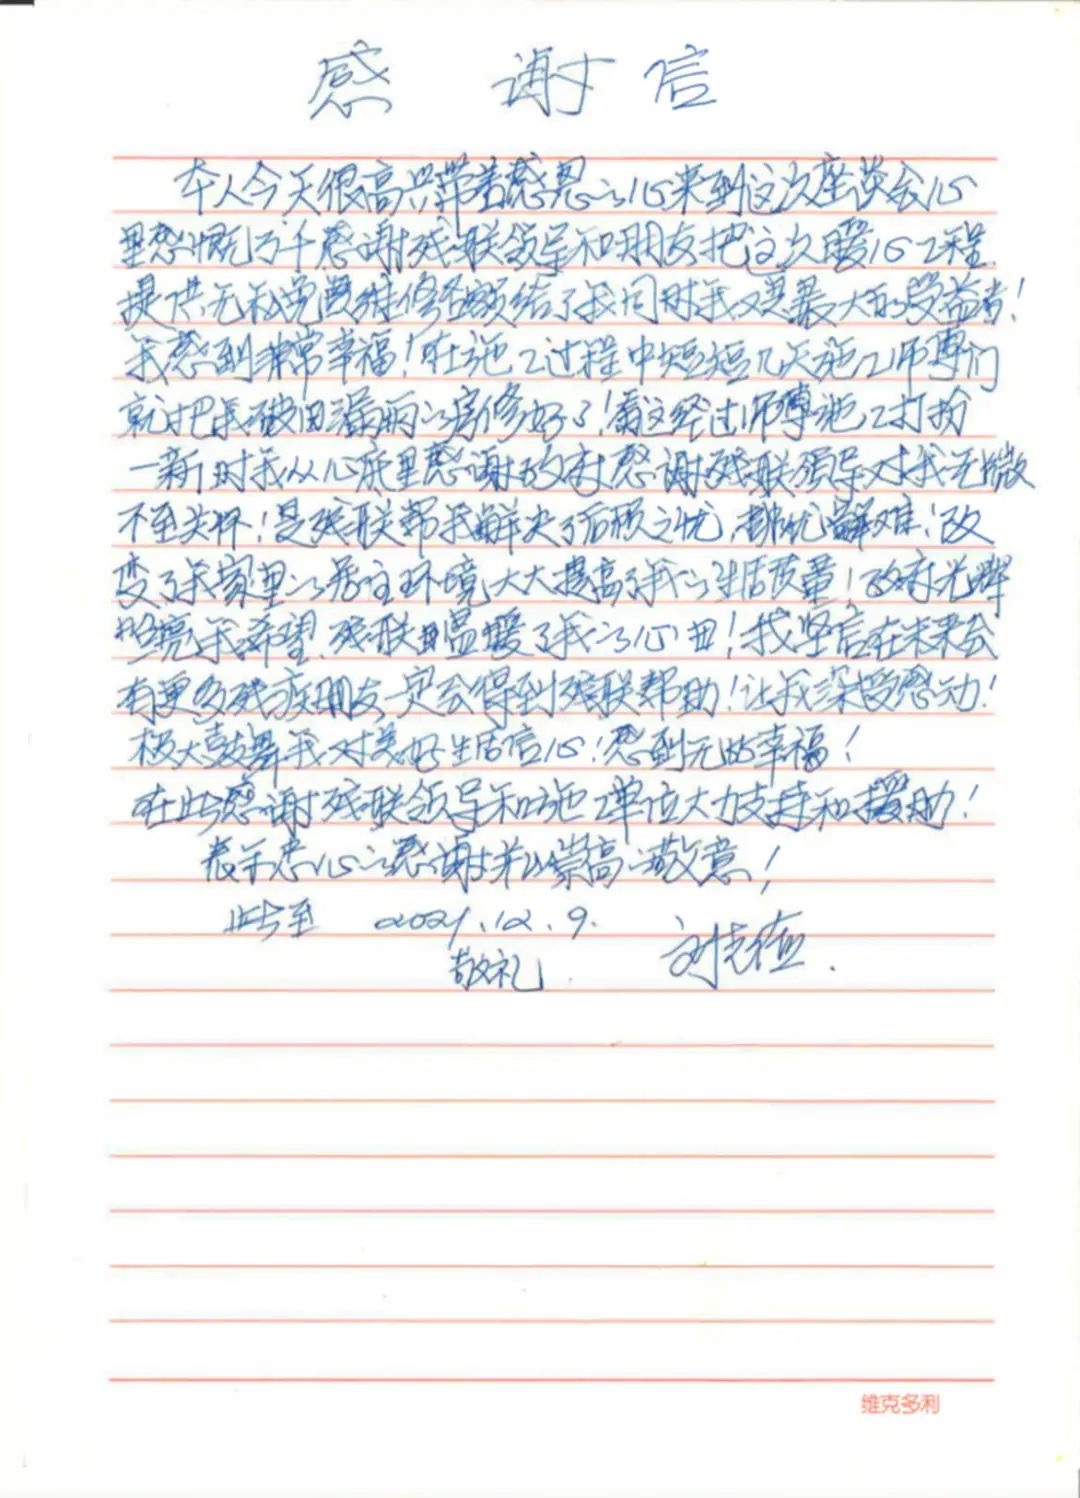 感 谢 信
本人今天很高兴带着感恩之心来到这次座谈会心
里感慨万千感谢残联领导和朋友把这次暖心工程
提供无私免费维修名额给了我同时我又是最大的受益者！
我感到非常幸福！在施工过程中短短几天施工师傅们
就把我破旧漏雨之房修好了！看这经过师傅施工打扮
一新时我从心底里感谢政府感谢残联领导对我无微
不至关怀！是残联帮我解决了后顾之忧，排忧解难！改
变了我家里之居住环境大大提高了我之生活质量！政府光辉
照亮我希望，残联温暖了我之心田！我坚信在未来会
有更多残疾朋友一定会得到残联帮助！让我深受感动！
极大鼓舞我对美好生活信心！感到无比幸福！
在此感谢残联领导和施工单位大力支持和援助！
表示忠心之感谢并以崇高之敬意！
此至 2021.12.9.
敬礼 刘
维克多利